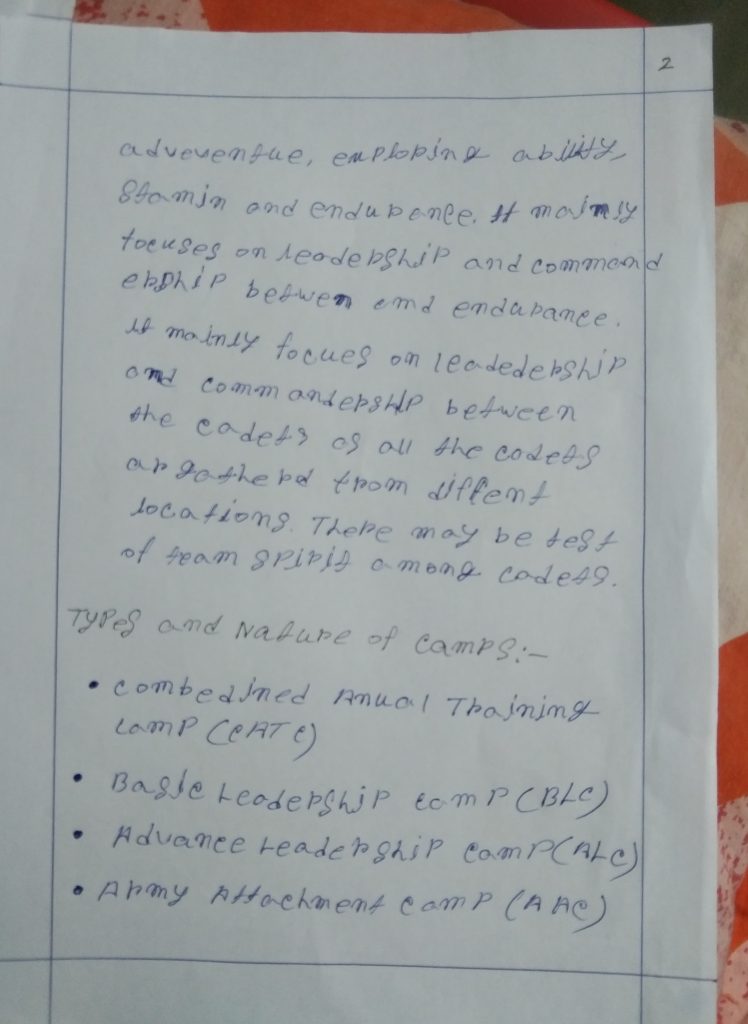 2
adveventue, exploping ability,
Stamin and endupance. It mainly
focuses on leadepship and command
epship betwen amd endupance.
it mainly focues on leadedepship
and commandepship between
the cadets as all the cadets
ap gathepd fpom diffent
locations. Thepe may be test
of team spipit among cadets.
Types and Natupe of camps:-
• combedined Anual Tpaining
camp (CATC)
• Basic Leadepship camp (BLC)
• Advance Leadepship camp (ALC)
• Apmy Attachment camp (AAC)